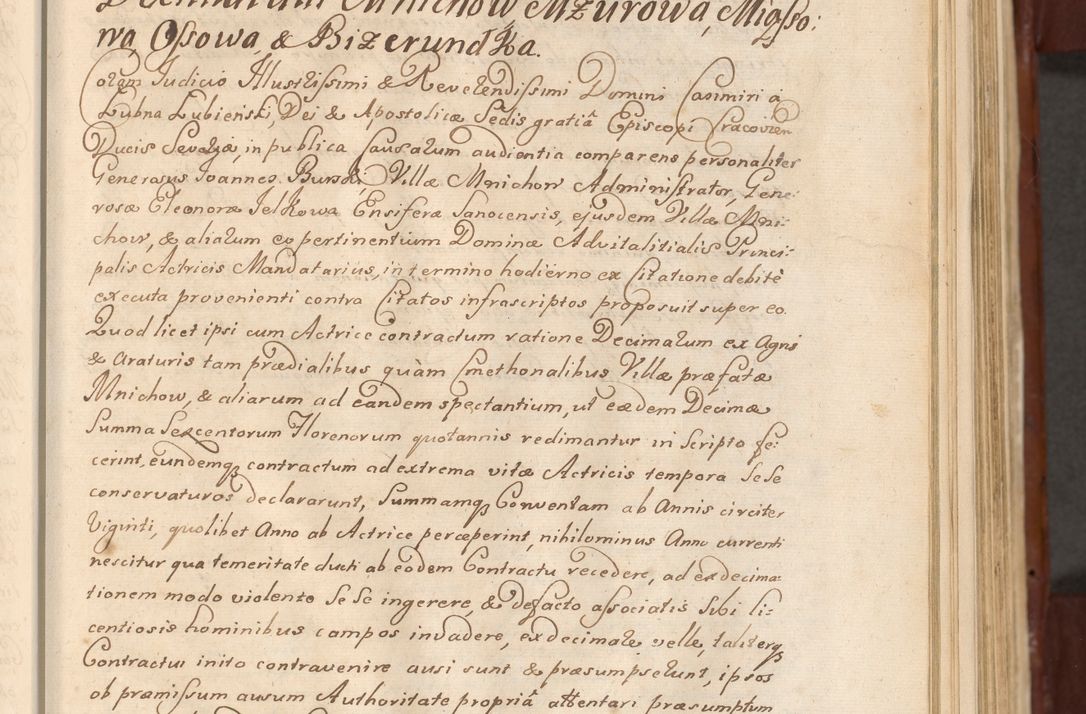 Decimarum Mnichow Mzurowa, Migsso:
wa, Ossowa, & Bizerundka.
Coram Iudicio Illustrissimi & Reverendissimi Domini Casimiri à
Łubna Łubieński, Dei & Apostolicæ Sedis gratiâ Episcopi Cracovien
Ducis Severiæ, in publica Causarum audientia comparens personaliter
Generosus Ioannes Burski Villæ Mnichow Administrator, Gene:
rosæ Eleonoræ Jelkowa Ensiferæ Sanocensis, ejusdem Villæ Mni:
chow, & aliarum eo pertinentium Dominæ Advitalitialis Princi:
palis Actricis Mandatarius, in termino hodierno ex Citatione debitè
executa provenienti contra Citatos infrascriptos proposuit super eo.
Quod licet ipsi cum Actrice contractum ratione Decimarum ex Agris
& Araturis tam prædialibus quàm Cmethonalibus Villæ præfatæ
Mnichow, & aliarum ad eandem spectantium, ut eædem Decimæ
Summa Sexcentorum Florenorum quotannis redimantur in Scripto fe:
cerint, eundemq contractum ad extrema vitæ Actricis tempora se se
conservaturos declararunt, Summamq Conventam ab Annis circiter
Viginti, quolibet Anno ab Actrice perceperint, nihilominus Anno currenti
nescitur qua temeritate ducti ab eodem Contractu recedere, ad exdecima:
tionem modo violento se se ingerere, & defacto associatis sibi li:
centiosis hominibus campos invadere, exdecimare velle, taliterq
Contractui inito contravenire ausi sunt & præsumpserunt, ipsos
ob præmissum ausum Authoritate propriâ attentari præsumptum